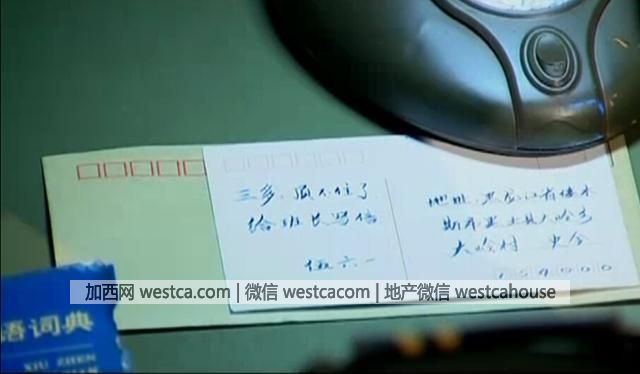 三多,顶不住了
给班长写信
伍六一
地址:黑龙江省佳木
斯市
大哈村 史今
154000
加西网 westca.com | 微信 westcacom | 地产微信 westcahouse
语词典
XIU ZHEN